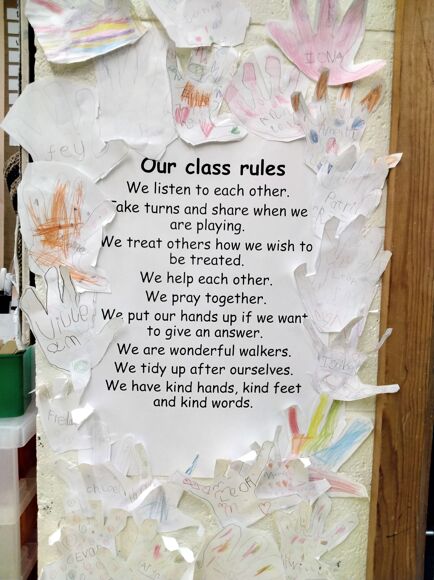 IONA
fey
Our class rules
We listen to each other.
Take turns and share when we
are playing.
We treat others how we wish to
be treated.
We help each other.
We pray together.
We put our hands up if we want
to give an answer.
We are wonderful walkers.
We tidy up after ourselves.
We have kind hands, kind feet
and kind words.